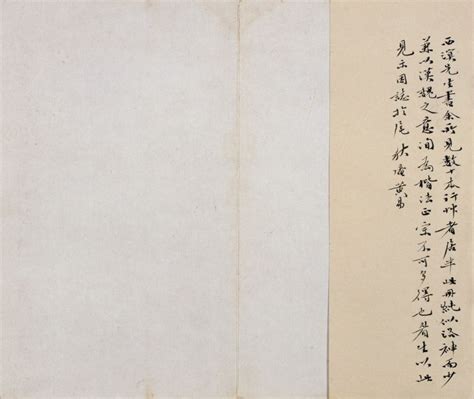 西溟先生書余所見數十本行草者居半此冊純似洛神而少
兼以漢魏之意洵為楷法正宗不可多得也看生以此
見示因誌於尾 秋盦黃易